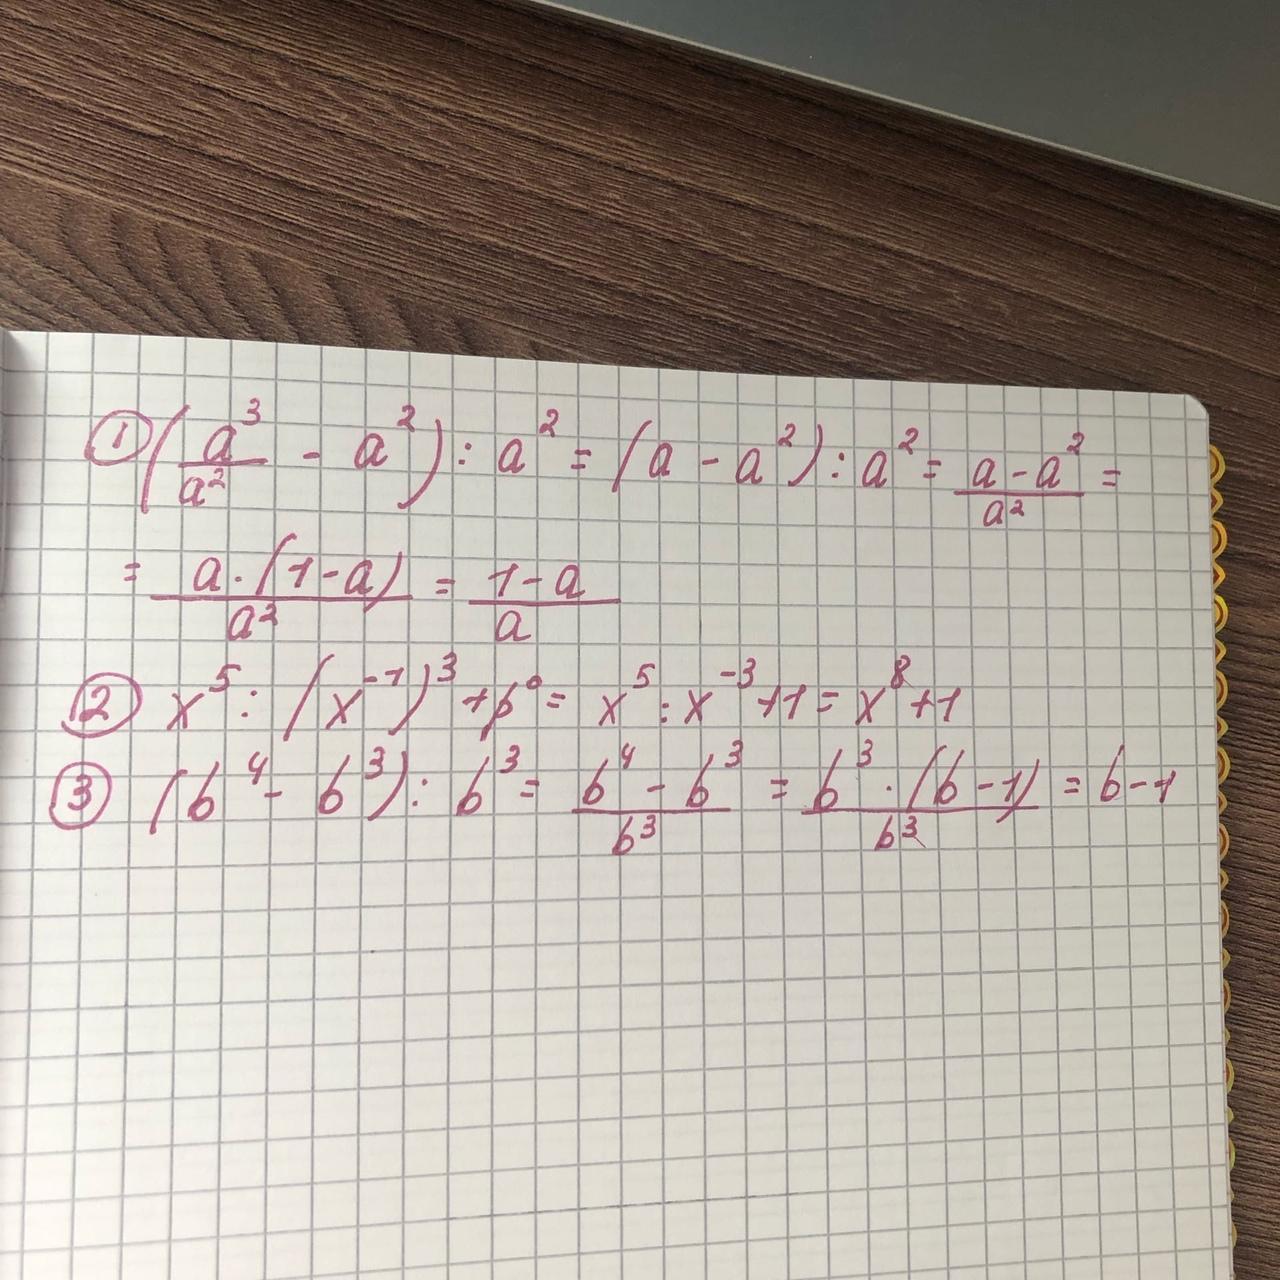 ① (a³/a² - a²) : a² = (a - a²) : a² = (a - a²)/a² =
= (a · (1 - a))/a² = (1 - a)/a
② x⁵ : (x⁻¹)³ + p⁰ = x⁵ : x⁻³ + 1 = x⁸ + 1
③ (b⁴ - b³) : b³ = (b⁴ - b³)/b³ = (b³ · (b - 1))/b³ = b - 1